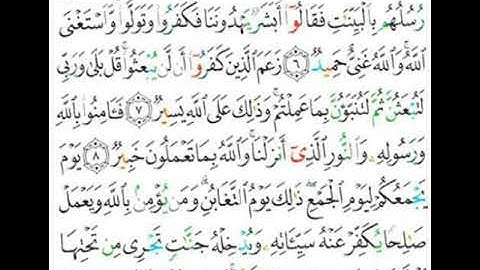 رُسُلُهُم بِٱلْبَيِّنَـٰتِ فَقَالُوٓا۟ أَبَشَرٌ يَهْدُونَنَا فَكَفَرُوا۟ وَتَوَلَّوا۟ وَّٱسْتَغْنَى
ٱللَّهُ ۚ وَٱللَّهُ غَنِىٌّ حَمِيدٌ ۝٦ زَعَمَ ٱلَّذِينَ كَفَرُوٓا۟ أَن لَّن يُبْعَثُوا۟ ۚ قُلْ بَلَىٰ وَرَبِّى
لَتُبْعَثُنَّ ثُمَّ لَتُنَبَّؤُنَّ بِمَا عَمِلْتُمْ ۚ وَذَٰلِكَ عَلَى ٱللَّهِ يَسِيرٌ ۝٧ فَـَٔامِنُوا۟ بِٱللَّهِ
وَرَسُولِهِۦ وَٱلنُّورِ ٱلَّذِىٓ أَنزَلْنَا ۚ وَٱللَّهُ بِمَا تَعْمَلُونَ خَبِيرٌ ۝٨ يَوْمَ
يَجْمَعُكُمْ لِيَوْمِ ٱلْجَمْعِ ۖ ذَٰلِكَ يَوْمُ ٱلتَّغَابُنِ ۗ وَمَن يُؤْمِنۢ بِٱللَّهِ وَيَعْمَلْ
صَـٰلِحًا يُكَفِّرْ عَنْهُ سَيِّـَٔاتِهِۦ وَيُدْخِلْهُ جَنَّـٰتٍ تَجْرِى مِن تَحْتِهَا